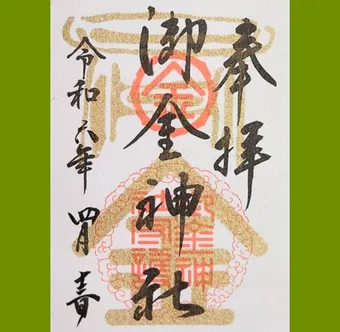 奉拝
御金神社
令和六年 四月
金
御金神
社守護